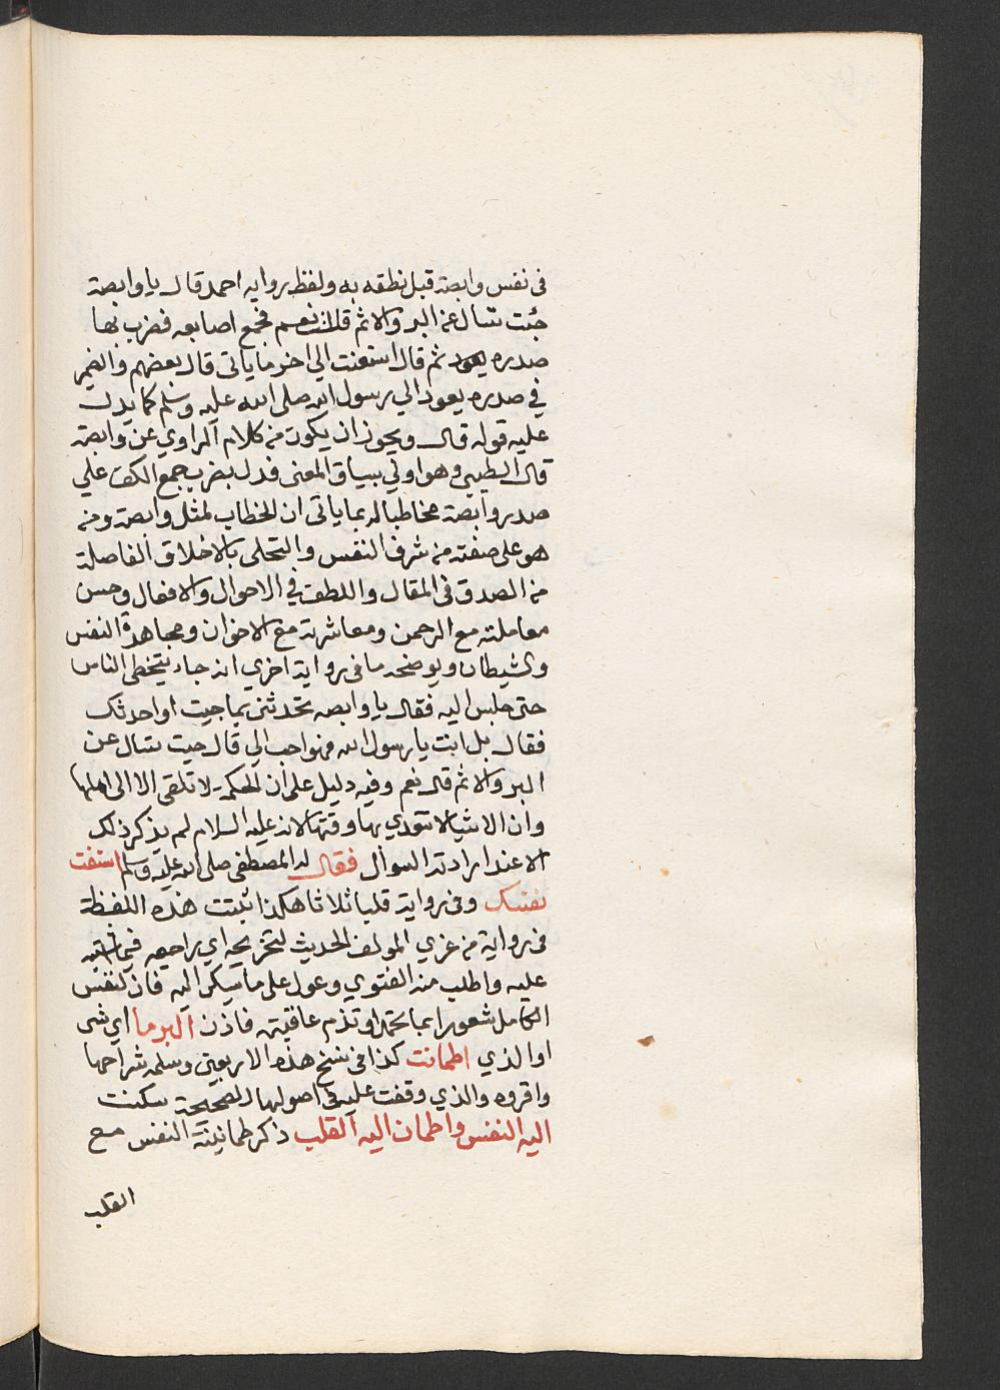 فى نفس وابصة قبل نطقه به ولفظ رواية احمد قال يا وابصة
جئت تسال عن البر والاثم قلت نعم فجمع اصابعه فضرب بها
صدره ثم قال استفت الي اخر ما ياتى قال بعضهم والضمير
في صدره يعود الي رسول الله صلى الله عليه وسلم كما يدل
عليه قوله قال ويجوز ان يكون من كلام الراوي عن وابصة
قال الطيبى وهو اولي بسياق المعنى فدل بضرب جمع الكف علي
صدر وابصة مخاطبا له بما ياتى ان الخطاب لمثل وابصة ومن
هو على صفته من شرف النفس والتحلى بالاخلاق الفاضلة
من الصدق فى المقال واللطف في الاحوال والافعال وحسن
معاملته مع الرحمن ومعاشرته مع الاخوان ومجاهدة النفس
والشيطان ويوضحه ما فى رواية اخري انه جاء يتخطى الناس
حتى جلس اليه فقال يا وابصه تحدثنى بما جيت او احدثك
فقال بل انت يا رسول الله فهو احب الي قال جيت تسال عن
البر والاثم قال نعم وفيه دليل على ان الحكمة لا تلقى الا الى اهلها
وان الاشيا لا تودي بها وقتها لانه عليه السلام لم يذكر ذلك
الا عند ارادته السوال فقال له المصطفى صلى الله عليه وسلم استفت
نفسك وفى رواية قلبك ثلاثا هكذا ثبتت هذه اللفظة
فى رواية من عزي المولف الحديث لتخريجه اي راجعه فيما
عليه واطلب منه الفتوي وعول على ما اليه فان لنفس
الكامل شعورا بما تحمد او تذم عاقبته فاذن البر ما اي شى
او الذي اطمانت كذا فى نسخ هذه الاربعين وسلمه شراحها
واقروه والذي وقفت عليه في اصولها الصحيحة سكنت
اليه النفس واطمان اليه القلب ذكر طمانينة النفس مع
القلب